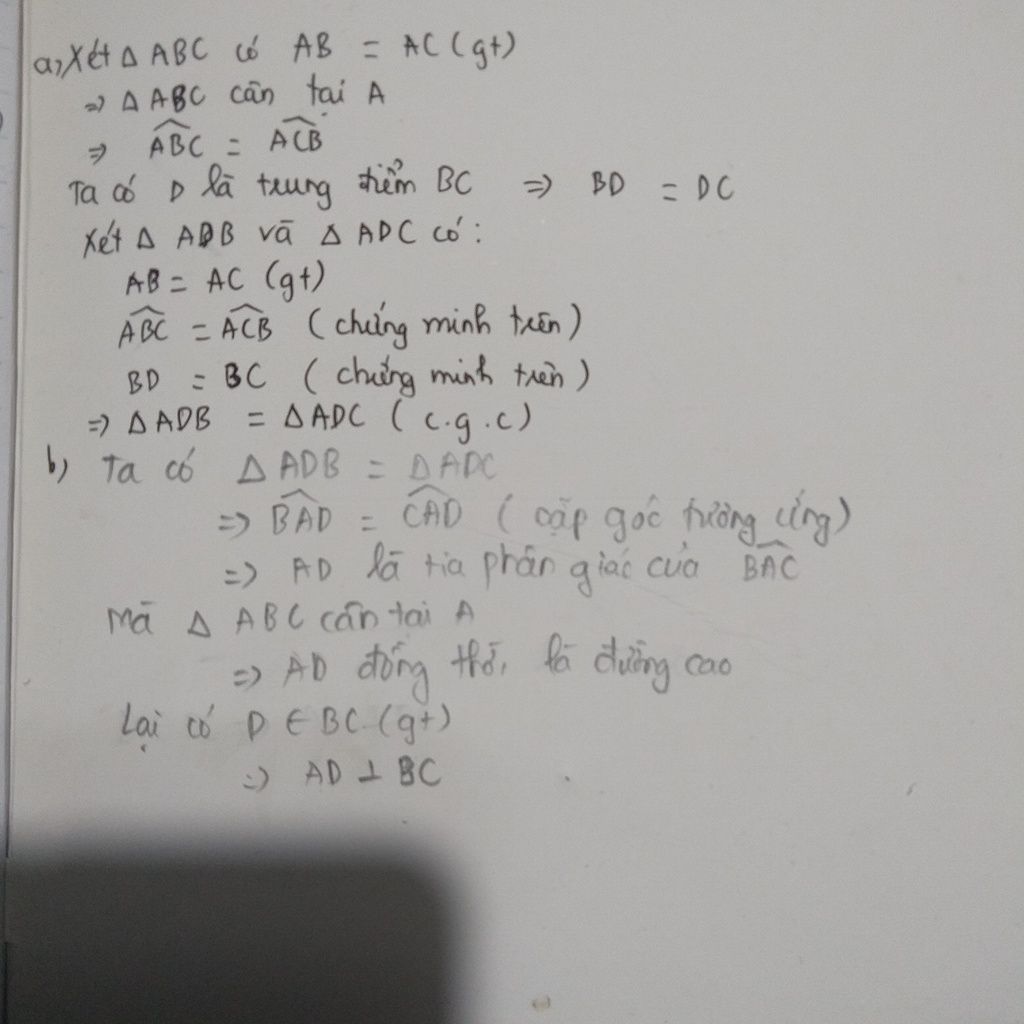 a, Xét Δ ABC có AB = AC (gt)
=> Δ ABC cân tại A
=> \widehat{ABC} = \widehat{ACB}
Ta có D là trung điểm BC => BD = DC
Xét Δ ADB và Δ ADC có:
AB = AC (gt)
\widehat{ABC} = \widehat{ACB} (chứng minh trên)
BD = BC (chứng minh trên)
=> Δ ADB = Δ ADC (c.g.c)
b, Ta có Δ ADB = Δ ADC
=> \widehat{BAD} = \widehat{CAD} (cặp góc tương ứng)
=> AD là tia phân giác của \widehat{BAC}
Mà Δ ABC cân tại A
=> AD đồng thời là đường cao
Lại có D ∈ BC (gt)
=> AD ⊥ BC